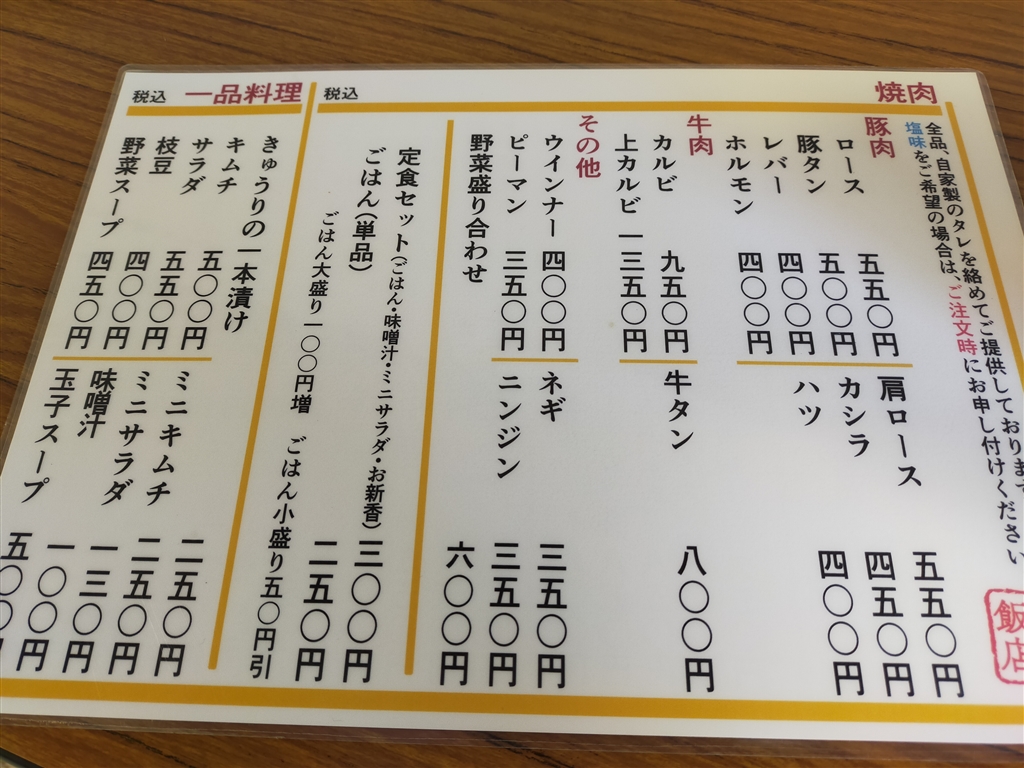 焼肉 税込
全品、自家製のタレを絡めてご提供しております
塩味をご希望の場合は、ご注文時にお申し付けください
豚肉
ロース 五五〇円 肩ロース 五五〇円
豚タン 五〇〇円 カシラ 四五〇円
レバー 四〇〇円 ハツ 四〇〇円
ホルモン 四〇〇円
牛肉
カルビ 九五〇円 牛タン 八〇〇円
上カルビ 一三五〇円
その他
ウインナー 四〇〇円 ネギ 三五〇円
ピーマン 三五〇円 ニンジン 三五〇円
野菜盛り合わせ 六〇〇円
定食セット(ごはん・味噌汁・ミニサラダ・お新香) 三〇〇円
ごはん(単品) 二五〇円
ごはん大盛り一〇〇円増 ごはん小盛り五〇円引
一品料理 税込
きゅうりの一本漬け 二五〇円
キムチ 五〇〇円 ミニキムチ 二五〇円
サラダ 五五〇円 ミニサラダ 一三〇円
枝豆 四〇〇円 味噌汁 一〇〇円
野菜スープ 四五〇円 玉子スープ 五〇〇
飯店